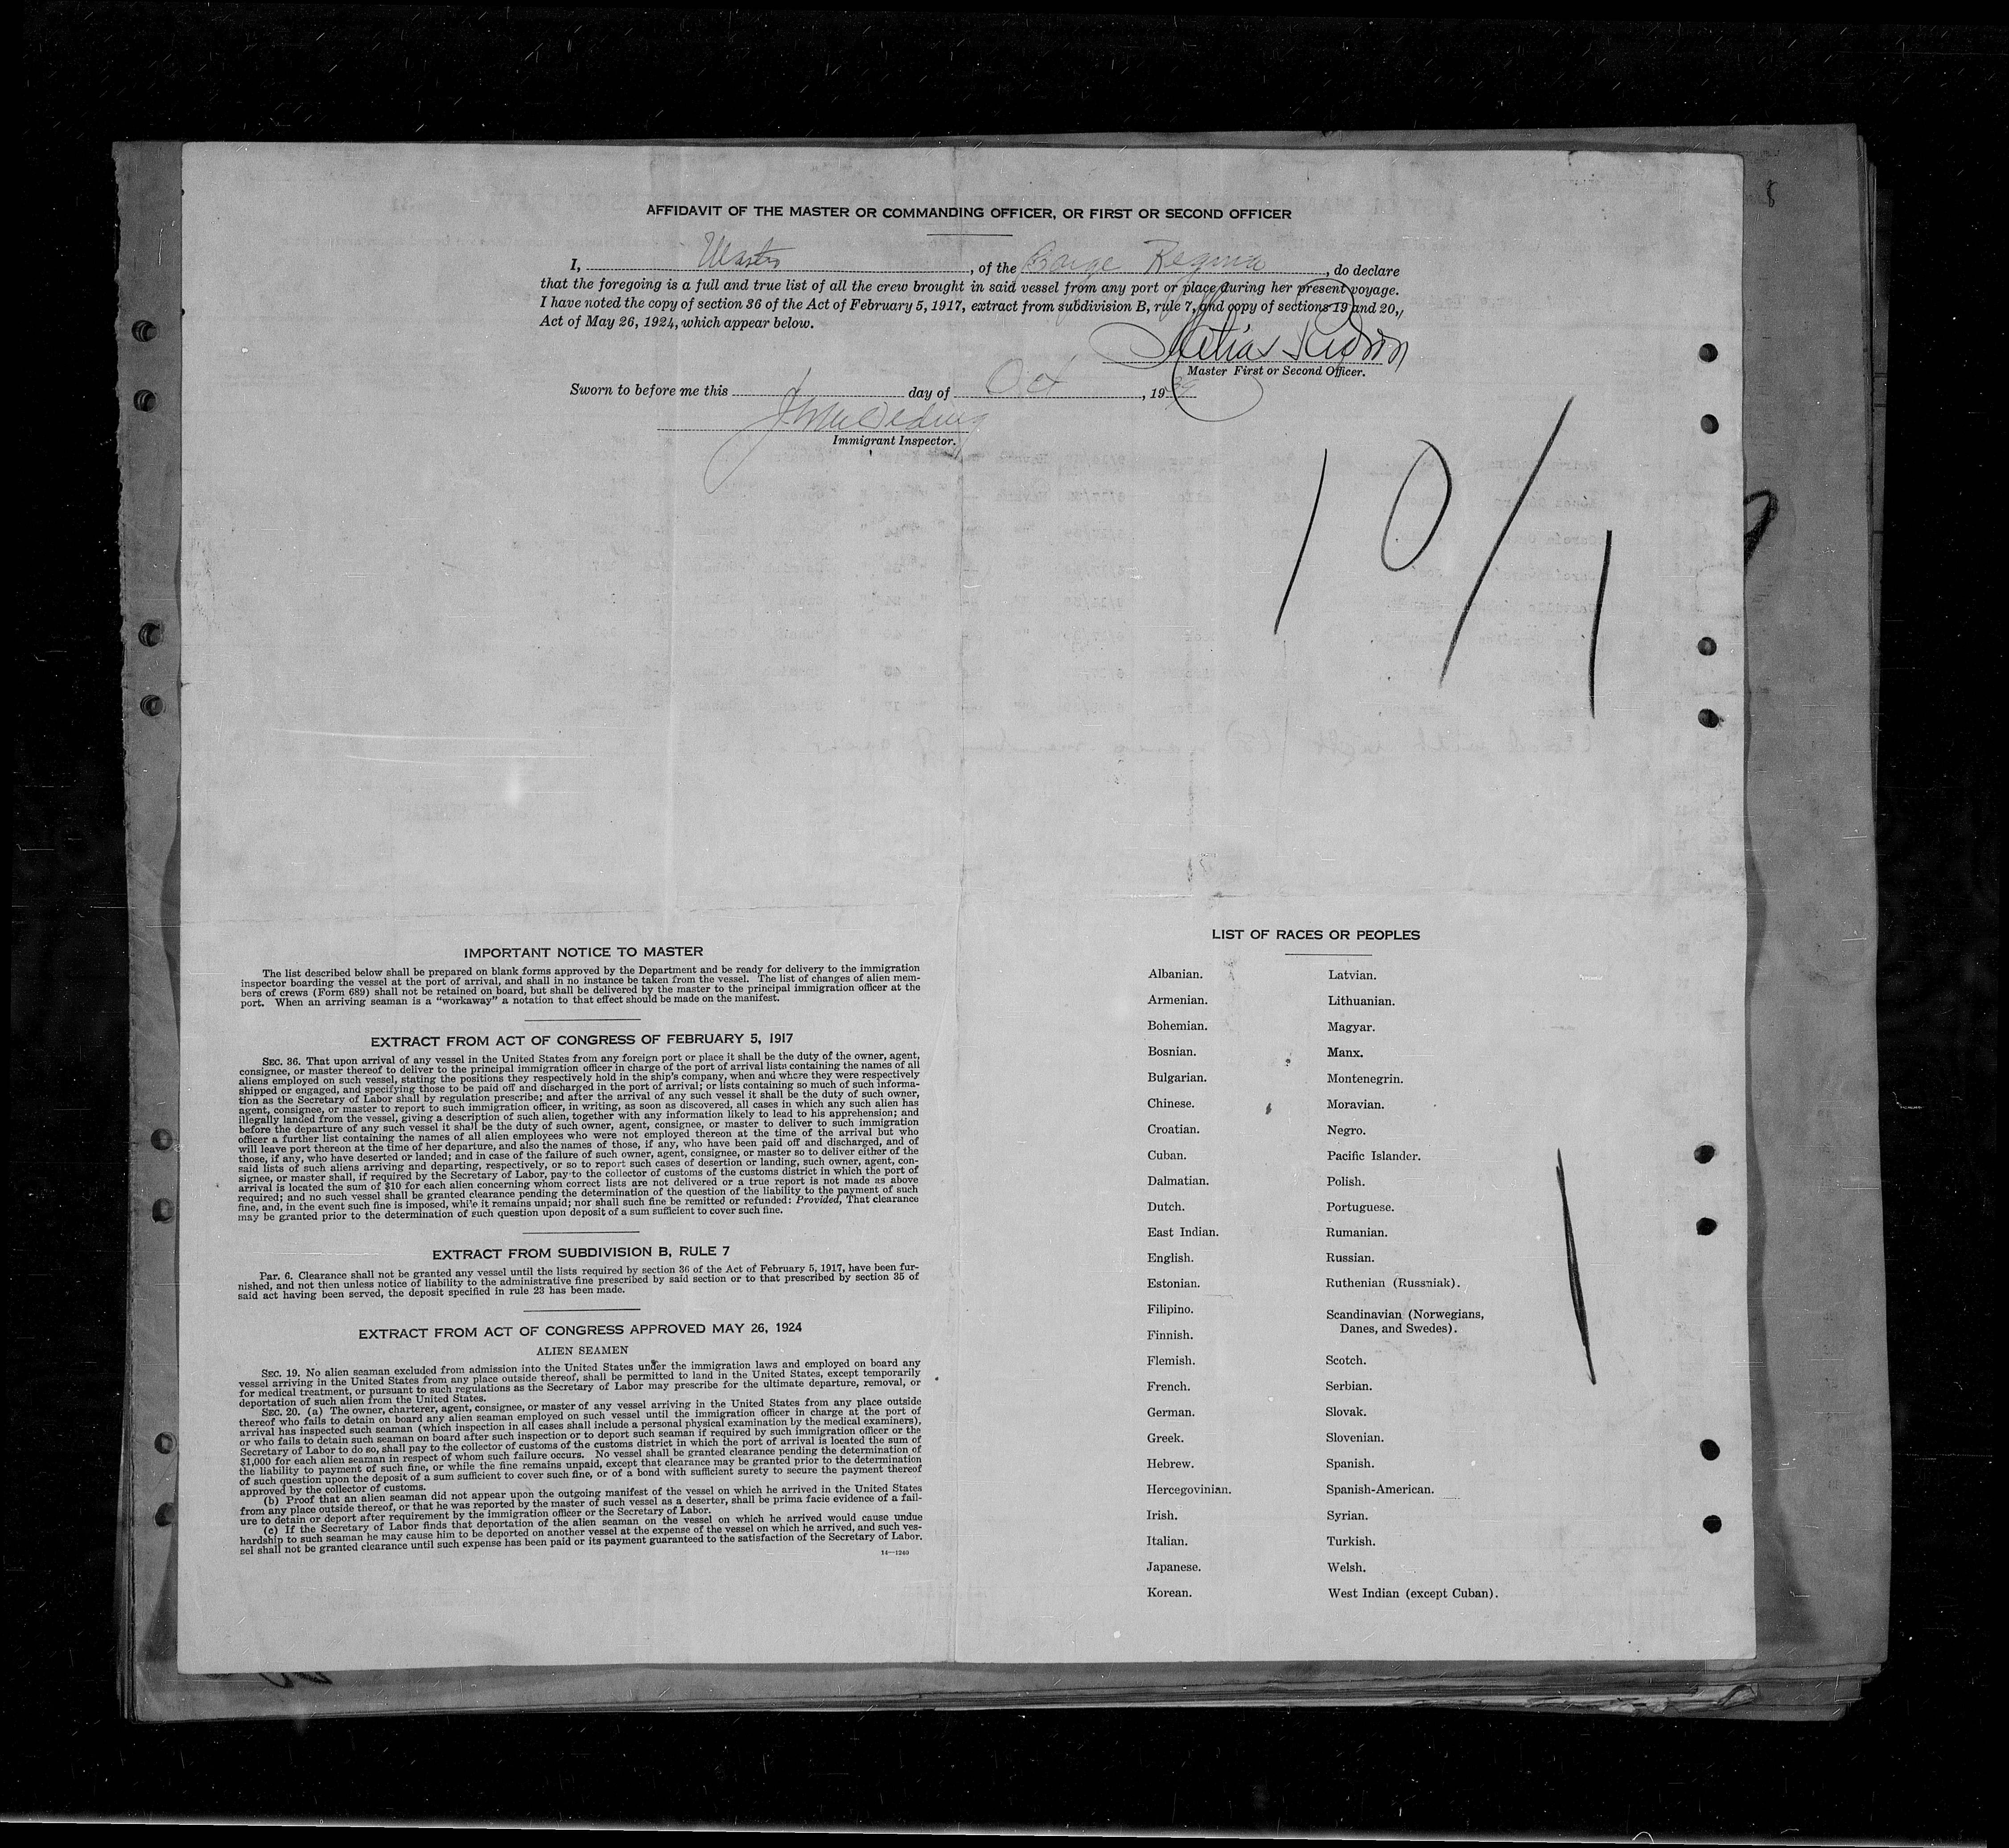 AFFIDAVIT OF THE MASTER OR COMMANDING OFFICER, OR FIRST OR SECOND OFFICER
I, Master, of the Barge Regina, do declare
that the foregoing is a full and true list of all the crew brought in said vessel from any port or place during her present voyage.
I have noted the copy of section 36 of the Act of February 5, 1917, extract from subdivision B, rule 7, and copy of sections 19 and 20,
Act of May 26, 1924, which appear below.
Master First or Second Officer.
Sworn to before me this 1 day of Oct, 1939
Immigrant Inspector.
10/1
8
IMPORTANT NOTICE TO MASTER
The list described below shall be prepared on blank forms approved by the Department and be ready for delivery to the immigration
inspector boarding the vessel at the port of arrival, and shall in no instance be taken from the vessel. The list of changes of alien mem-
bers of crews (Form 689) shall not be retained on board, but shall be delivered by the master to the principal immigration officer at the
port. When an arriving seaman is a "workaway" a notation to that effect should be made on the manifest.
EXTRACT FROM ACT OF CONGRESS OF FEBRUARY 5, 1917
SEC. 36. That upon arrival of any vessel in the United States from any foreign port or place it shall be the duty of the owner, agent,
consignee, or master thereof to deliver to the principal immigration officer in charge of the port of arrival lists containing the names of all
aliens employed on such vessel, stating the positions they respectively hold in the ship's company, when and where they were respectively
shipped or engaged, and specifying those to be paid off and discharged in the port of arrival; or lists containing so much of such informa-
tion as the Secretary of Labor shall by regulation prescribe; and after the arrival of any such vessel it shall be the duty of such owner,
agent, consignee, or master to report to such immigration officer, in writing, as soon as discovered, all cases in which any such alien has
illegally landed from the vessel, giving a description of such alien, together with any information likely to lead to his apprehension; and
before the departure of any such vessel it shall be the duty of such owner, agent, consignee, or master to deliver to such immigration
officer a further list containing the names of all alien employees who were not employed thereon at the time of the arrival but who
will leave port thereon at the time of her departure, and also the names of those, if any, who have been paid off and discharged, and of
those, if any, who have deserted or landed; and in case of the failure of such owner, agent, consignee, or master so to deliver either of the
said lists of such aliens arriving and departing, respectively, or so to report such cases of desertion or landing, such owner, agent, con-
signee, or master shall, if required by the Secretary of Labor, pay to the collector of customs of the customs district in which the port of
arrival is located the sum of $10 for each alien concerning whom correct lists are not delivered or a true report is not made as above
required; and no such vessel shall be granted clearance pending the determination of the question of the liability to the payment of such
fine, and, in the event such fine is imposed, while it remains unpaid; nor shall such fine be remitted or refunded: Provided, That clearance
may be granted prior to the determination of such question upon deposit of a sum sufficient to cover such fine.
EXTRACT FROM SUBDIVISION B, RULE 7
Par. 6. Clearance shall not be granted any vessel until the lists required by section 36 of the Act of February 5, 1917, have been fur-
nished, and not then unless notice of liability to the administrative fine prescribed by said section or to that prescribed by section 35 of
said act having been served, the deposit specified in rule 23 has been made.
EXTRACT FROM ACT OF CONGRESS APPROVED MAY 26, 1924
ALIEN SEAMEN
SEC. 19. No alien seaman excluded from admission into the United States under the immigration laws and employed on board any
vessel arriving in the United States from any place outside thereof, shall be permitted to land in the United States, except temporarily
for medical treatment, or pursuant to such regulations as the Secretary of Labor may prescribe for the ultimate departure, removal, or
deportation of such alien from the United States.
SEC. 20. (a) The owner, charterer, agent, consignee, or master of any vessel arriving in the United States from any place outside
thereof who fails to detain on board any alien seaman employed on such vessel until the immigration officer in charge at the port of
arrival has inspected such seaman (which inspection in all cases shall include a personal physical examination by the medical examiners),
or who fails to detain such seaman on board after such inspection or to deport such seaman if required by such immigration officer or the
Secretary of Labor to do so, shall pay to the collector of customs of the customs district in which the port of arrival is located the sum of
$1,000 for each alien seaman in respect of whom such failure occurs. No vessel shall be granted clearance pending the determination of
the liability to payment of such fine, or while the fine remains unpaid, except that clearance may be granted prior to the determination
of such question upon the deposit of a sum sufficient to cover such fine, or of a bond with sufficient surety to secure the payment thereof
approved by the collector of customs.
(b) Proof that an alien seaman did not appear upon the outgoing manifest of the vessel on which he arrived in the United States
from any place outside thereof, or that he was reported by the master of such vessel as a deserter, shall be prima facie evidence of a fail-
ure to detain or deport after requirement by the immigration officer or the Secretary of Labor.
(c) If the Secretary of Labor finds that deportation of the alien seaman on the vessel on which he arrived would cause undue
hardship to such seaman he may cause him to be deported on another vessel at the expense of the vessel on which he arrived, and such ves-
sel shall not be granted clearance until such expense has been paid or its payment guaranteed to the satisfaction of the Secretary of Labor.
14—1240
LIST OF RACES OR PEOPLES
Albanian.
Armenian.
Bohemian.
Bosnian.
Bulgarian.
Chinese.
Croatian.
Cuban.
Dalmatian.
Dutch.
East Indian.
English.
Estonian.
Filipino.
Finnish.
Flemish.
French.
German.
Greek.
Hebrew.
Hercegovinian.
Irish.
Italian.
Japanese.
Korean.
Latvian.
Lithuanian.
Magyar.
Manx.
Montenegrin.
Moravian.
Negro.
Pacific Islander.
Polish.
Portuguese.
Rumanian.
Russian.
Ruthenian (Russniak).
Scandinavian (Norwegians,
Danes, and Swedes).
Scotch.
Serbian.
Slovak.
Slovenian.
Spanish.
Spanish-American.
Syrian.
Turkish.
Welsh.
West Indian (except Cuban).